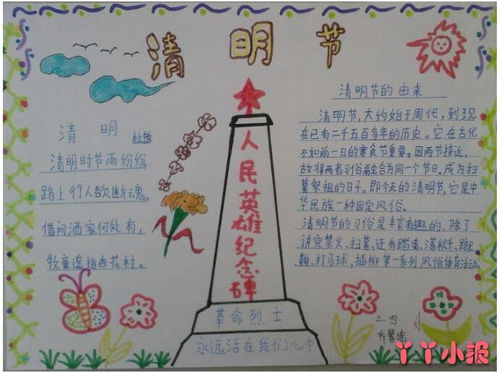 清明节
清明
杜牧
清明时节雨纷纷
路上行人欲断魂
借问酒家何处有，
牧童遥指杏花村。
人民英雄纪念碑
革命烈士
永远活在我们心中
清明节的由来
清明节，大约始于周代，到现
在已有二千五百多年的历史。它在古代
不如前一日的寒食节重要。因两节接近，
故将两者习俗融合为同一个节日，成为扫
墓祭祖的日子。即今天的清明节，它是中
华民族一种固定风俗。
清明节的习俗是丰富有趣的，除了
讲究禁火、扫墓，还有踏青、荡秋千、蹴
鞠、打马球、插柳等一系列风俗体育活动。
三、四
丫丫小报